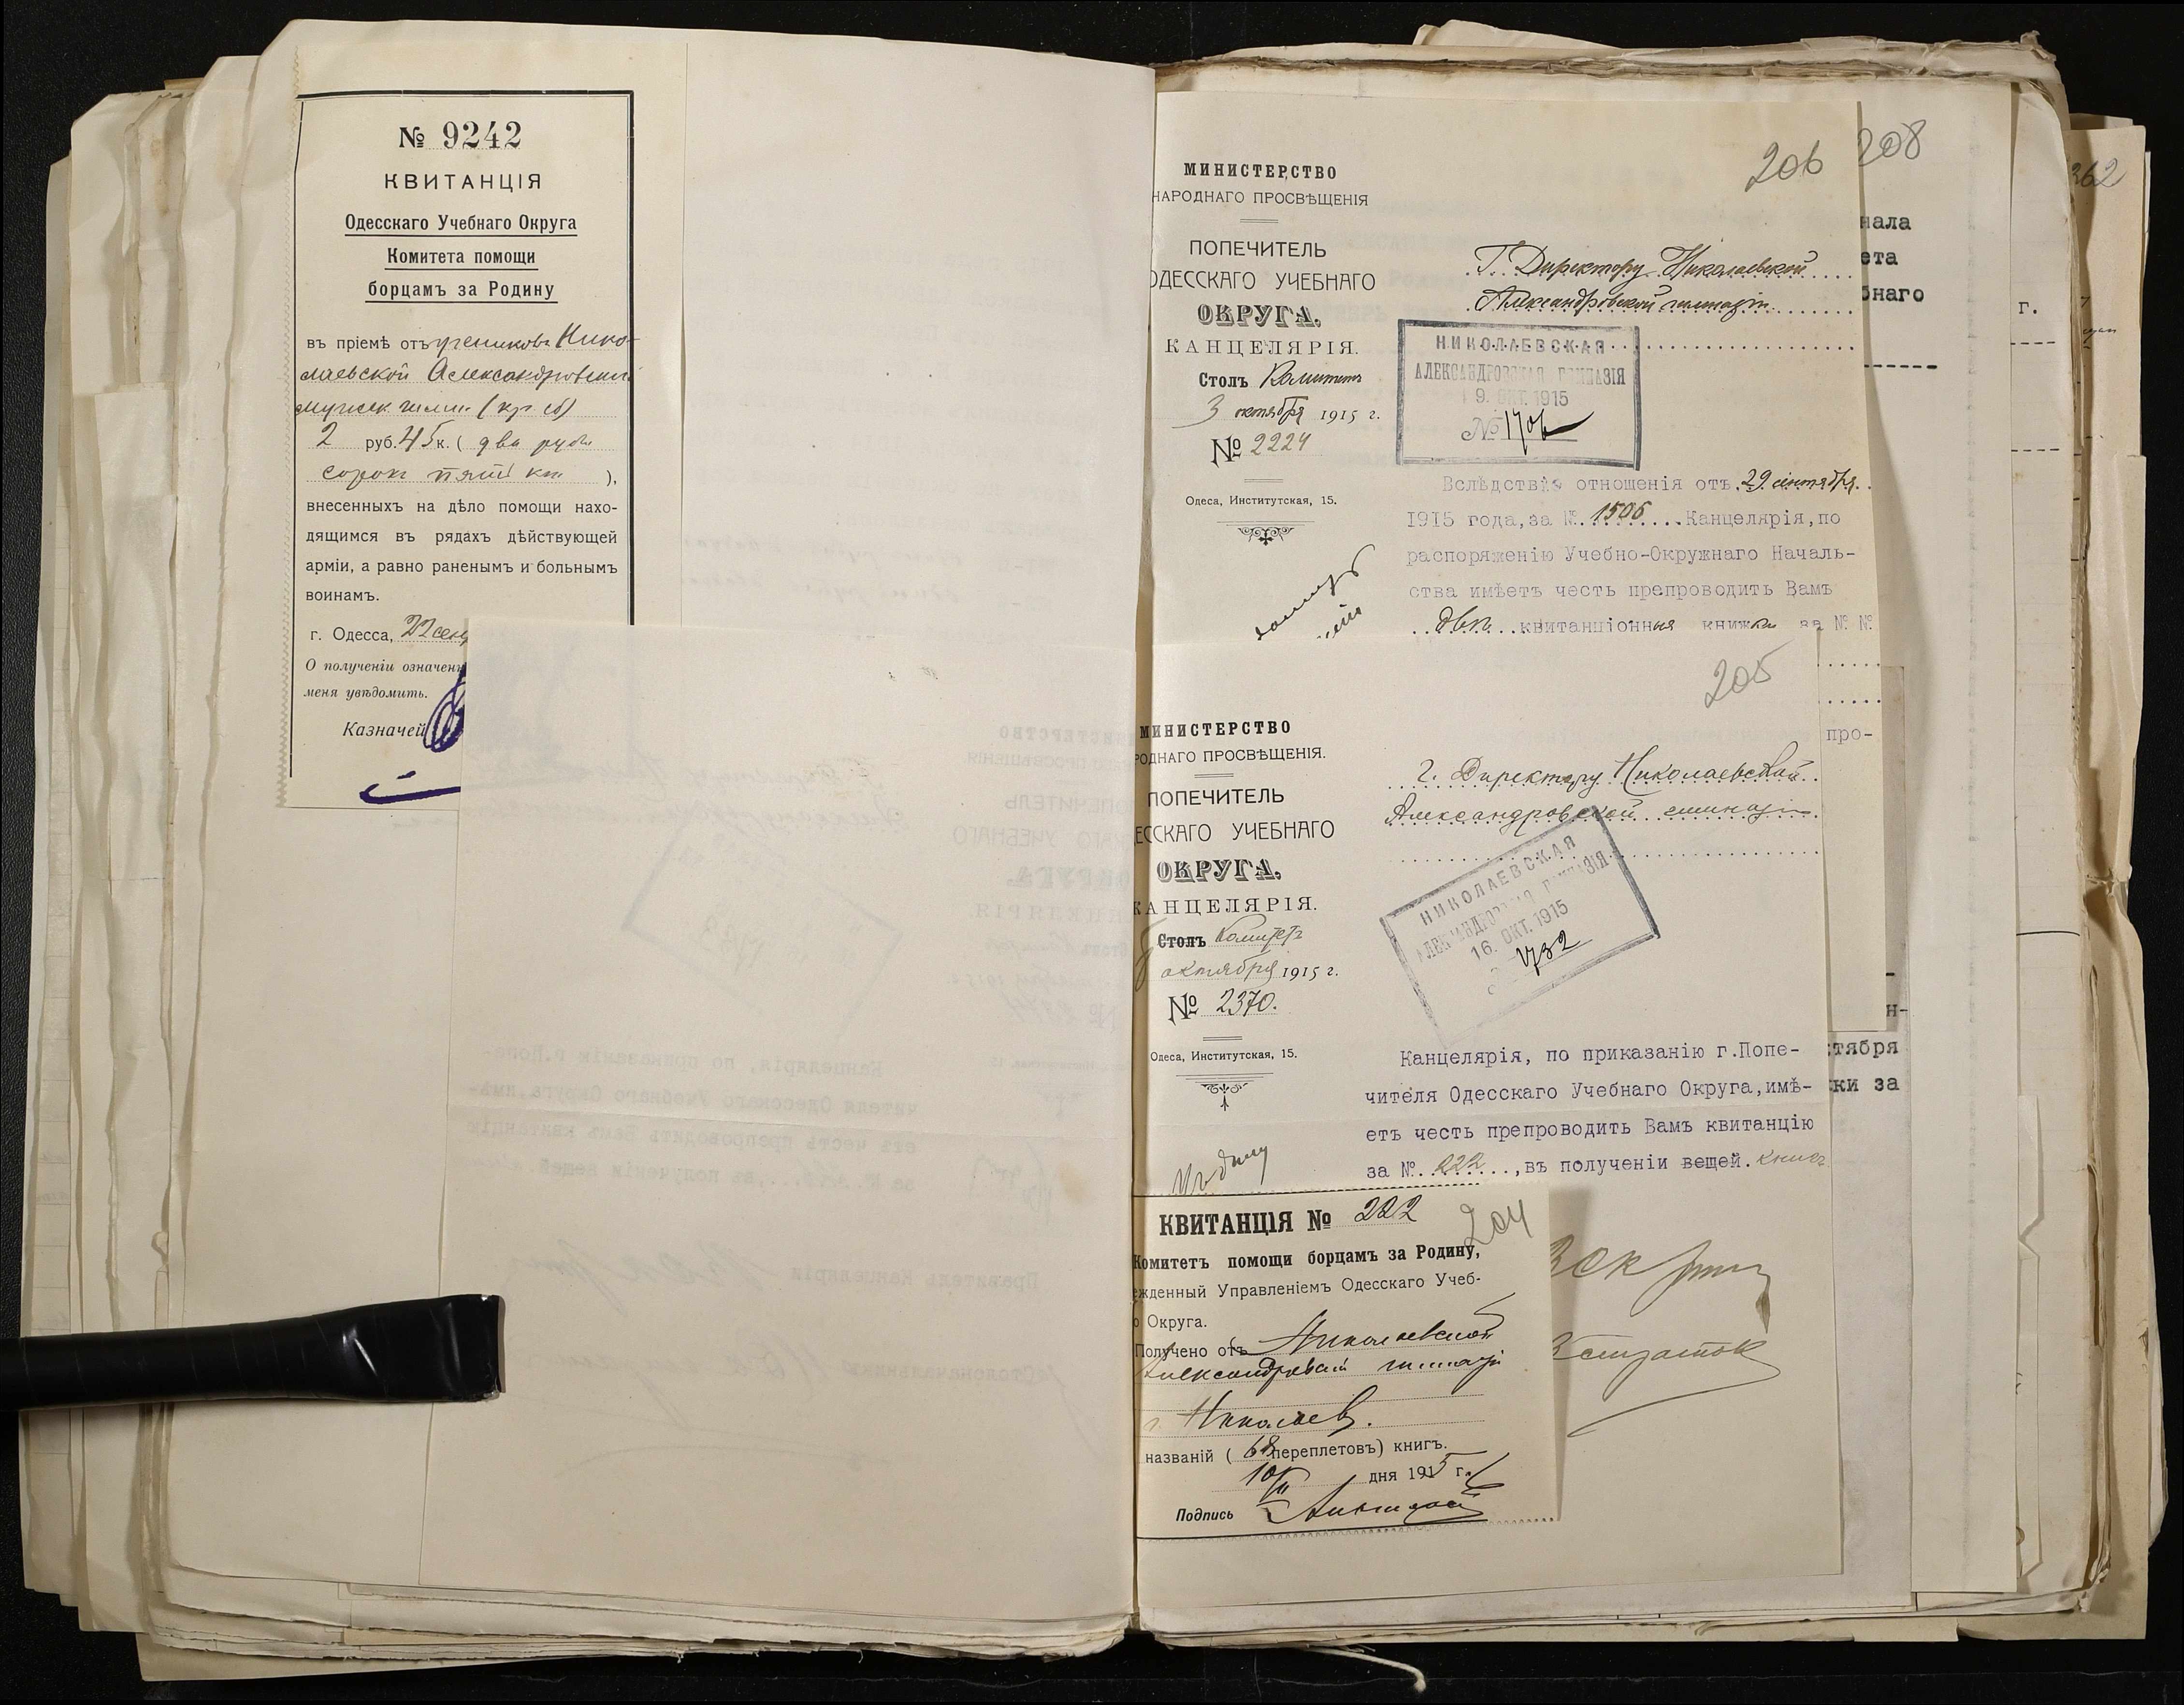 № 9242
КВИТАНЦІЯ
Одесскаго Учебнаго Округа
Комитета помощи
борцамъ за Родину
въ пріемѣ отъ учениковъ Нико-
лаевской Александровской
мужск. гимн. (кр. сб)
2 руб. 45 к. ( два рубл
сорок пять коп ),
внесенныхъ на дѣло помощи нахо-
дящимся въ рядахъ дѣйствующей
арміи, а равно раненымъ и больнымъ
воинамъ.
г. Одесса, 22 сен
О полученіи означен
меня увѣдомить.
Казначей
206
208
262
МИНИСТЕРСТВО
НАРОДНАГО ПРОСВѢЩЕНІЯ
ПОПЕЧИТЕЛЬ
ОДЕССКАГО УЧЕБНАГО
ОКРУГА.
КАНЦЕЛЯРІЯ.
Столъ Комитетъ
3 октября 1915 г.
№ 2224
Одеса, Институтская, 15.
Г. Директору Николаевской
Александровской гимназіи
НИКОЛАЕВСКАЯ
АЛЕКСАНДРОВСКАЯ ГИМНАЗІЯ
9. ОКТ. 1915
№ 1706
Вслѣдствіе отношенія отъ 29 сентября
1915 года, за № 1506 Канцелярія, по
распоряженію Учебно-Окружнаго Началь-
ства имѣетъ честь препроводить Вамъ
двѣ квитанціонныя книжки за № №
нала
ета
бнаго
г.
про-
н-
тября
ки за
205
МИНИСТЕРСТВО
РОДНАГО ПРОСВѢЩЕНІЯ.
ПОПЕЧИТЕЛЬ
ЕССКАГО УЧЕБНАГО
ОКРУГА.
КАНЦЕЛЯРІЯ.
Столъ Комитетъ
октября 1915 г.
№ 2370.
Одеса, Институтская, 15.
г. Директору Николаевской
Александровской гимназіи
НИКОЛАЕВСКАЯ
АЛЕКСАНДРОВСКАЯ ГИМНАЗІЯ
16. ОКТ. 1915
1732
Канцелярія, по приказанію г.Попе-
чителя Одесскаго Учебнаго Округа, имѣ-
етъ честь препроводить Вамъ квитанцію
за № 222, въ полученіи вещей. книгъ
Къ дѣлу
204
КВИТАНЦІЯ № 222
Комитетъ помощи борцамъ за Родину,
ежденный Управленіемъ Одесскаго Учеб-
о Округа.
Получено отъ Николаевской
Александровской гимназіи
г. Николаев.
названій ( 68 переплетовъ) книгъ.
10/ дня 1915 г.
Подпись